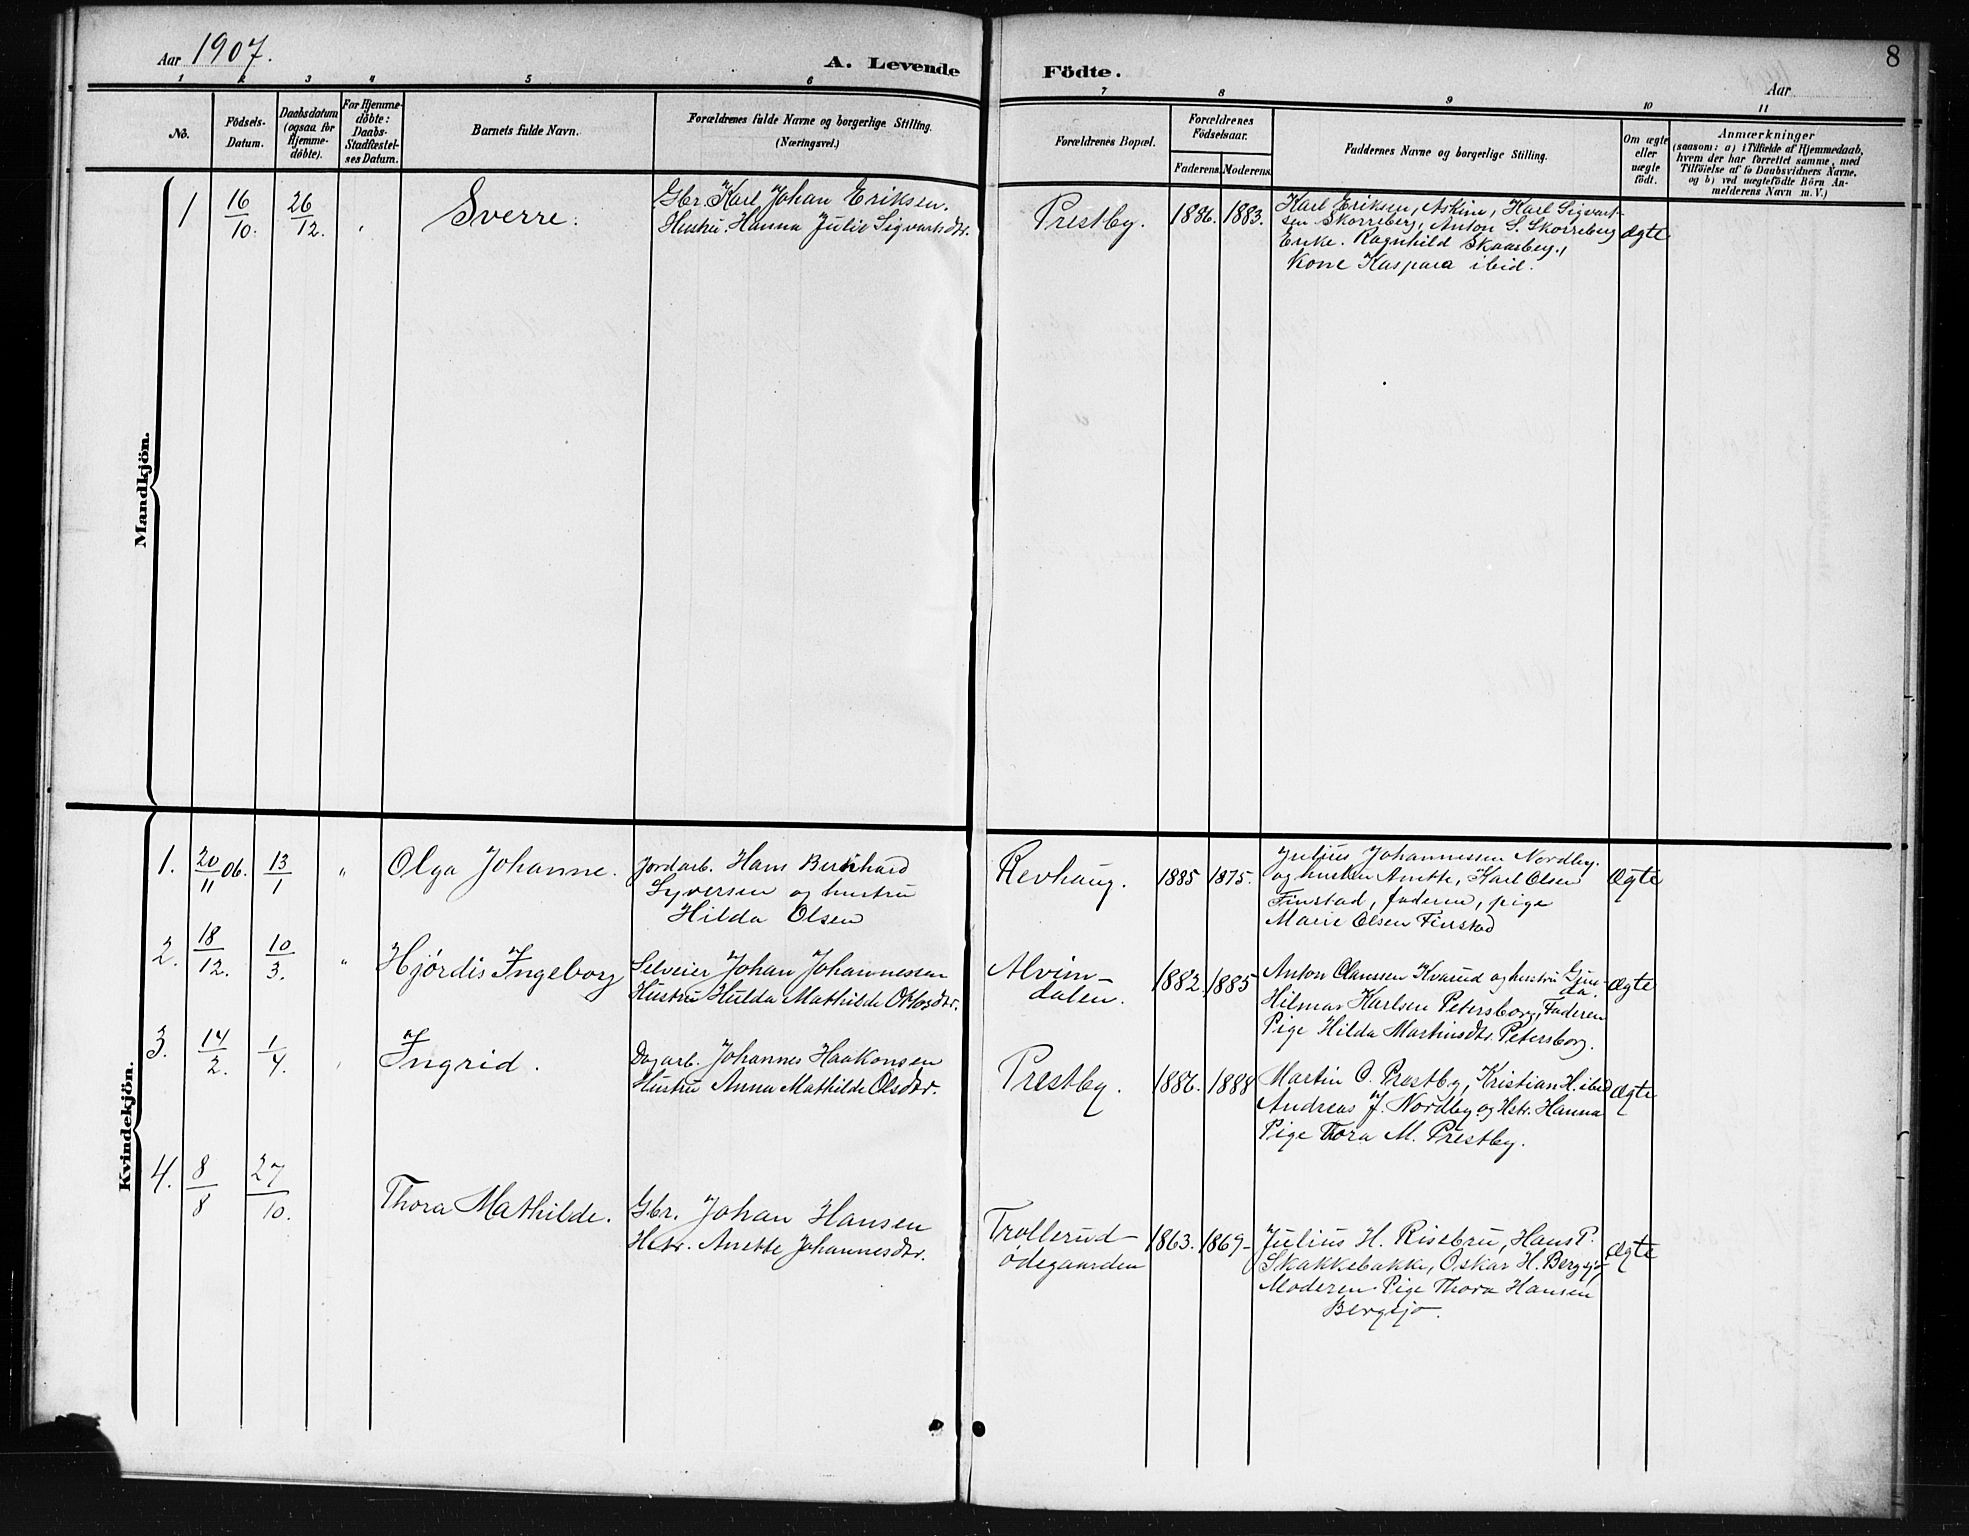 Aar 1907.
A. Levende Födte.
Aar
8
1 2 3 4 5 6 7 8 9 10 11
No.
Födsels-
Datum.
Daabsdatum
(ogsaa for
Hjemme-
döbte).
For Hjemme-
döbte:
Daabs-
Stadfæstel-
ses Datum.
Barnets fulde Navn.
Forældrenes fulde Navne og borgerlige Stilling.
(Næringsvei.)
Forældrenes Bopæl.
Forældrenes
Födselsaar.
Faderens. Moderens.
Faddernes Navne og borgerlige Stilling.
Om ægte
eller
uægte
födt.
Anmærkninger
(saasom: a) i Tilfælde af Hjemmedaab,
hvem der har forrettet samme, med
Tilföielse af to Daabsvidners Navne.
og b) ved uægtefödte Börn An-
melderens Navn m. V.)
Mandkjön.
1 16/10. 26/12. " Sverre.
Gbr. Karl Johan Eriksen.
Hustru. Hanna Julie Sigvartsdtr.
Prestby. 1886. 1883.
Karl Eriksen, Askim, Karl Sigvart-
sen Skorreberg, Anton S. Skorreberg
Enke. Ragnhild Skaasberg.,
Kone Kaspara ibid.
Ægte
Kvindekjön.
1. 20/11 06. 13/1 " Olga Johanne.
Jordarb. Hans Bernhard
Syversen og hustru
Hilda Olsen
Revhaug. 1885 1875.
Julius Johannessen Nordby.
og hustru Anette, Karl Olsen
Finstad, faderen, pige
Marie Olsen Finstad
Ægte
2. 18/12. 10/3. " Hjørdis Ingeborg
Selveier Johan Johannessen
Hustru Hulda Mathilde Olsdtr.
Alvim-
dalen. 1882. 1885
Anton Olaussen Kvarud og hustru Gun-
da.
Hilmar Karlsen Petersborg, Faderen
Pige Hilda Martinsdtr. Petersborg.
Ægte
3. 14/2. 1/4. " Ingrid.
Dagarb. Johannes Haakonsen
Hustru Anna Mathilde Olsdtr.
Prestby. 1886. 1888
Martin O. Prestby, Kristian H. ibid
Andreas J. Nordby og Hstr. Hanna
Pige Thora M. Prestby.
Ægte
4. 8/8 27/10. Thora Mathilde.
Gbr. Johan Hansen
Hstr. Anette Johannesdtr.
Trollerud-
ødegaarden 1863. 1869-
Julius H. Risebru, Hans P.
Skakkebakke, Oskar H. Bergsjø
Moderen. Pige Thora Hansen
Bergsjø.
Ægte